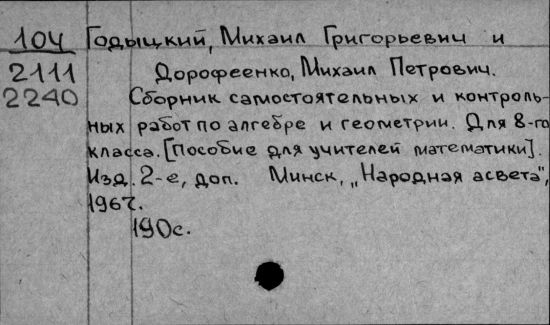 104 Годыцкий, Михаил Григорьевич и
2111 Дорофеенко, Михаил Петрович.
2240 Сборник самостоятельных и контроль-
ных работ по алгебре и геометрии. Для 8-го
класса. [Пособие для учителей математики].
Изд. 2-е, доп. Минск, „Народная асвета",
1967.
190с.